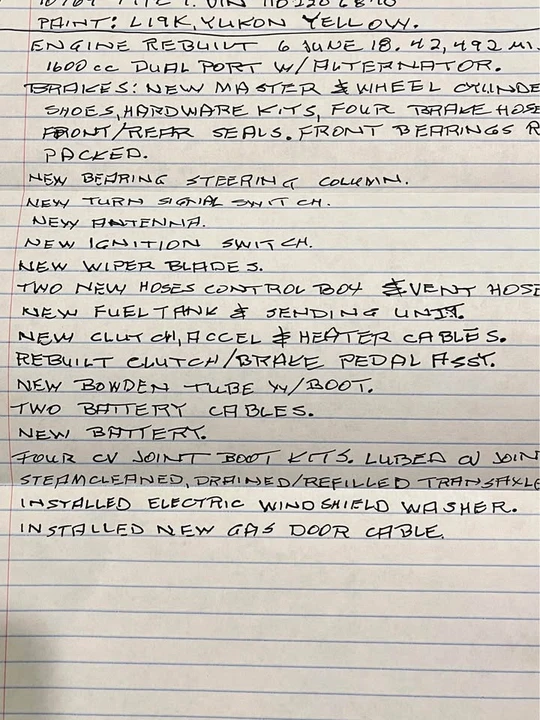 PAINT: L19K, YUKON YELLOW.
ENGINE REBUILT 6 JUNE 18. 42,492 MI.
1600 cc DUAL PORT W/ALTERNATOR.
BRAKES: NEW MASTER & WHEEL CYLINDE
SHOES, HARDWARE KITS, FOUR BRAKE HOSE
FRONT/REAR SEALS. FRONT BEARINGS R
PACKED.
NEW BEARING STEERING COLUMN.
NEW TURN SIGNAL SWITCH.
NEW ANTENNA.
NEW IGNITION SWITCH.
NEW WIPER BLADES.
TWO NEW HOSES CONTROL BOX & VENT HOSE
NEW FUEL TANK & SENDING UNIT.
NEW CLUTCH, ACCEL & HEATER CABLES.
REBUILT CLUTCH/BRAKE PEDAL ASSY.
NEW BOWDEN TUBE W/BOOT.
TWO BATTERY CABLES.
NEW BATTERY.
FOUR CV JOINT BOOT KITS. LUBED CV JOIN
STEAMCLEANED, DRAINED/REFILLED TRANSAXLE
INSTALLED ELECTRIC WINDSHIELD WASHER.
INSTALLED NEW GAS DOOR CABLE.